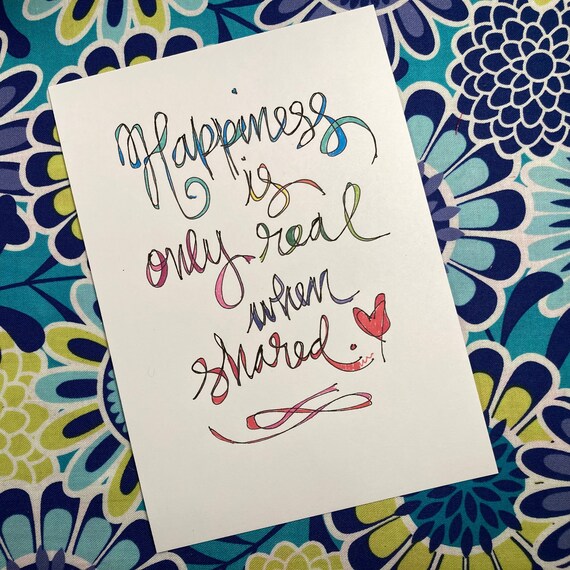 Happiness
is
only real
when
shared.